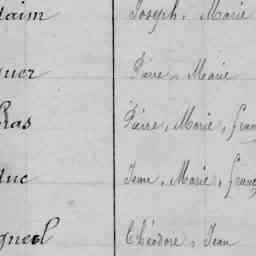 daim Joseph, Marie
quer Pierre, Marie
Ras Pierre, Marie, fran
duc Jean, Marie, franç
Théodore, Jean